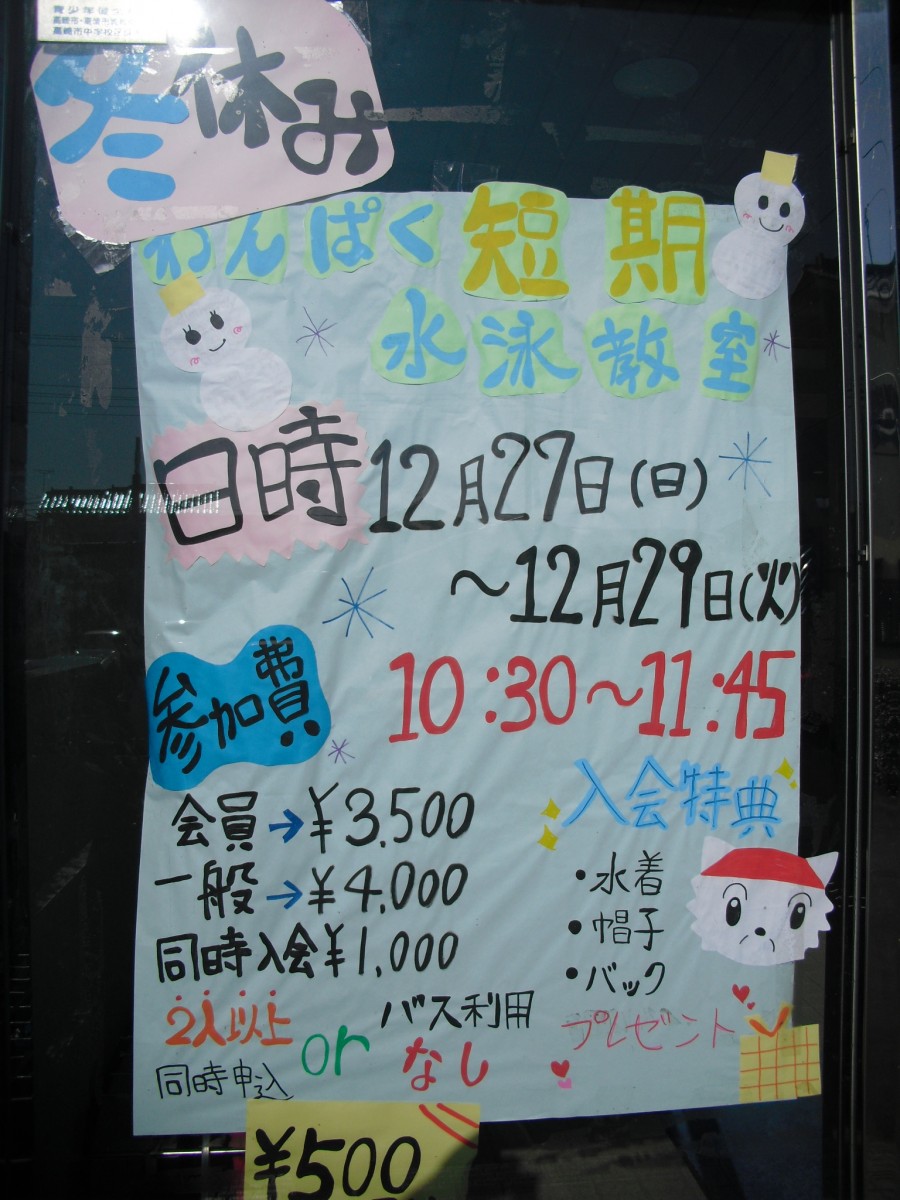 冬休み
わんぱく短期
水泳教室
日時 12月27日(日)
～12月29日(火)
10:30～11:45
参加費
会員→¥3,500
一般→¥4,000
同時入会¥1,000
2人以上
同時申込
or
バス利用
なし
¥500
入会特典
・水着
・帽子
・バック
プレゼント